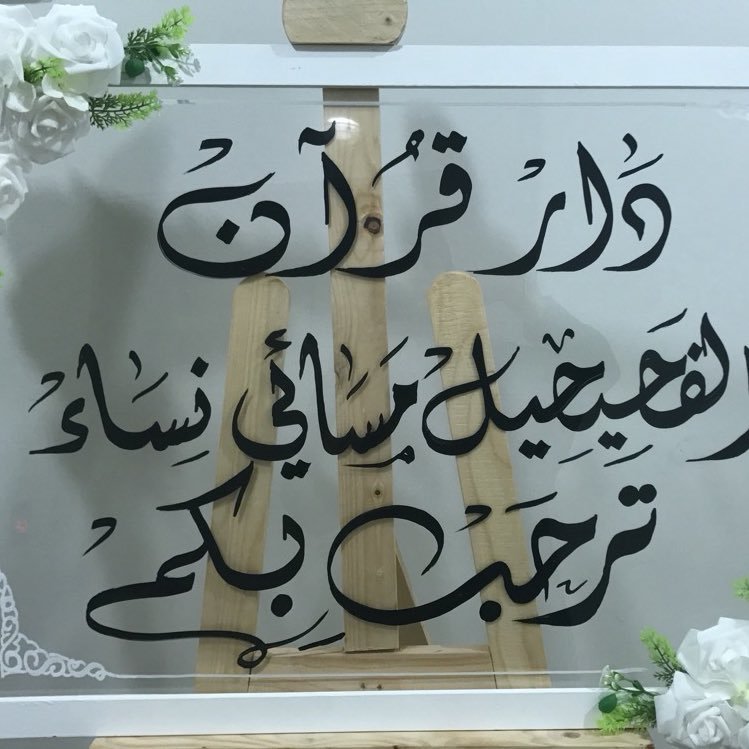 دَارْ قُرْآنْ
القحيحيل مسائي نساء
ترحب بكم